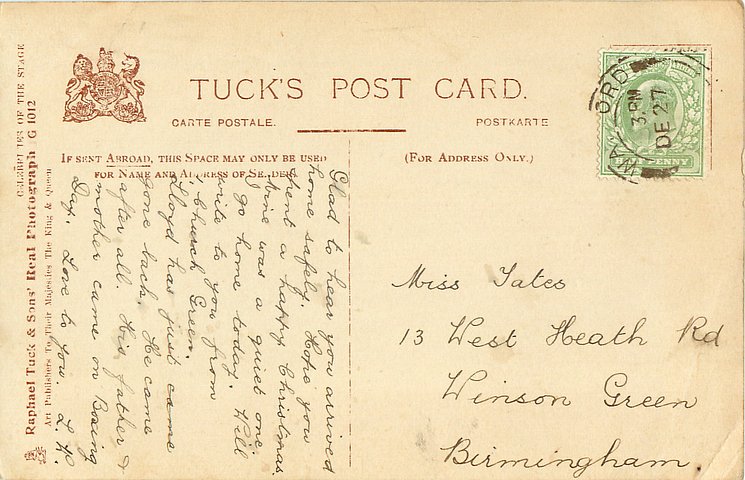 TUCK'S POST CARD.
CARTE POSTALE.
POSTKARTE
IF SENT ABROAD, THIS SPACE MAY ONLY BE USED
FOR NAME AND ADDRESS OF SENDER.
(FOR ADDRESS ONLY.)
CELEBRITIES OF THE STAGE
Raphael Tuck & Sons' Real Photograph G 1012
Art Publishers To Their Majesties The King & Queen
ORD
3 PM
DE 27
WA
PENNY
Glad to hear you arrived
home safely. Hope you
spent a happy Christmas.
Mine was a quiet one.
I go home today. Will
write to you from
Church Green.
Lloyd has just came
gone back. He came
after all. His father &
mother came on Boxing
Day. Love to you. L. H.
Miss Yates
13 West Heath Rd
Winson Green
Birmingham.